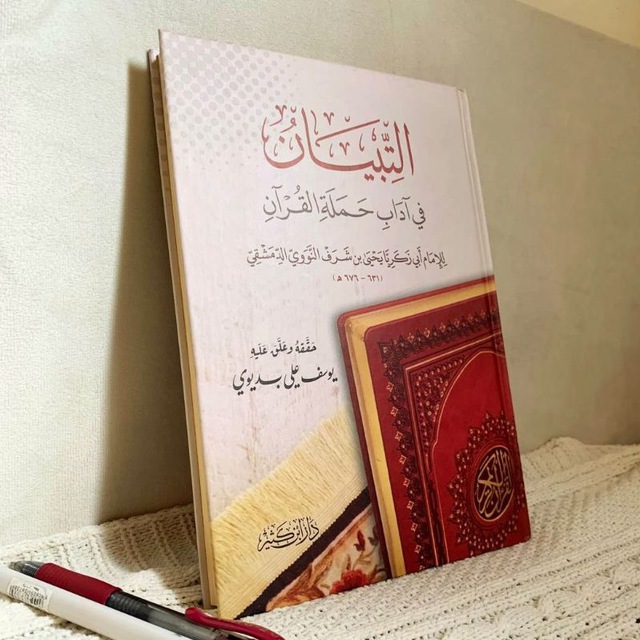 التِّبْيَانُ
في آدَابِ حَمَلَةِ القُرْآنِ
للإمَام أبي زكريّا يَحْيَى بن شَرَفٍ النَّوَوِيّ الدِّمَشْقِيّ
(٦٣١ - ٦٧٦ هـ)
حَقَّقَهُ وعَلَّقَ عَلَيْهِ
يوسف علي بديوي
دار ابن كثير
القرآن الكريم